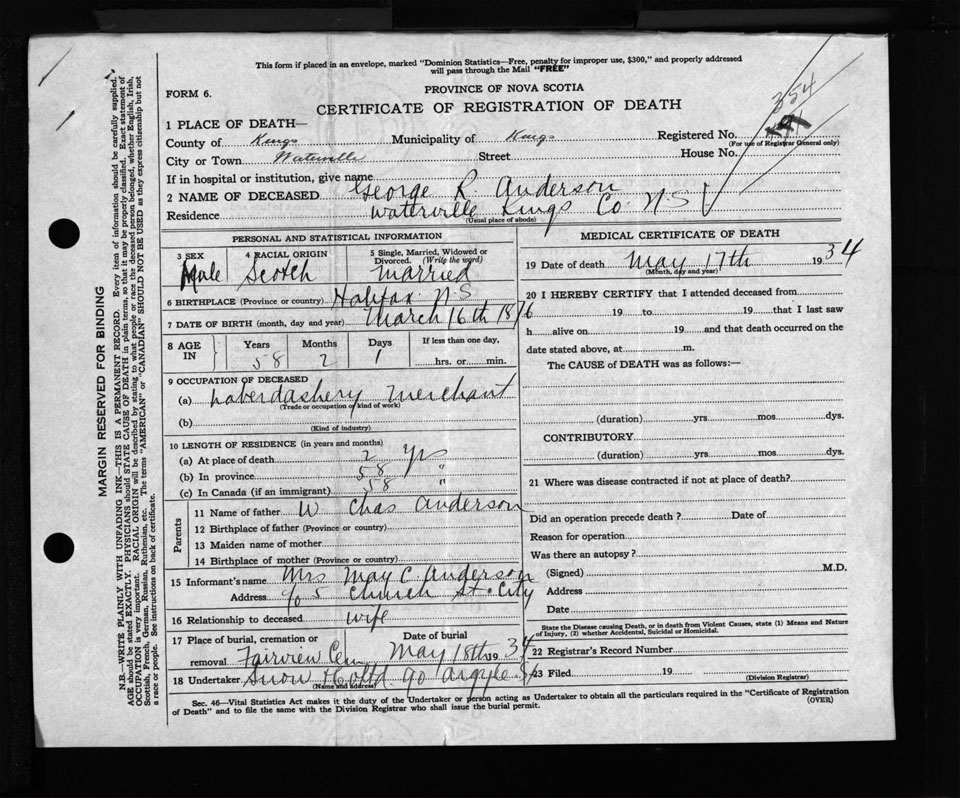 This form if placed in an envelope, marked "Dominion Statistics—Free, penalty for improper use, $300," and properly addressed
will pass through the Mail "FREE"
FORM 6.
PROVINCE OF NOVA SCOTIA
CERTIFICATE OF REGISTRATION OF DEATH
354
1 PLACE OF DEATH—
County of Kings Municipality of Kings Registered No.
(For use of Registrar General only)
City or Town Waterville Street House No.
If in hospital or institution, give name
2 NAME OF DECEASED George R. Anderson
Residence Waterville Kings Co. N.S
(Usual place of abode)
PERSONAL AND STATISTICAL INFORMATION
3 SEX 4 RACIAL ORIGIN 5 Single, Married, Widowed or
Divorced. (Write the word)
Male Scotch Married
6 BIRTHPLACE (Province or country) Halifax N S
7 DATE OF BIRTH (month, day and year) March 16th 1876
8 AGE IN Years Months Days If less than one day,
58 2 1 hrs. or min.
9 OCCUPATION OF DECEASED
(a) haberdashery Merchant
(Trade or occupation or kind of work)
(b)
(Kind of industry)
10 LENGTH OF RESIDENCE (in years and months)
(a) At place of death 2 yrs
(b) In province 58 "
(c) In Canada (if an immigrant) 58 "
Parents
11 Name of father W Chas Anderson
12 Birthplace of father (Province or country)
13 Maiden name of mother
14 Birthplace of mother (Province or country)
15 Informant's name Mrs May C. Anderson
Address 5 Church St. City
16 Relationship to deceased wife
17 Place of burial, cremation or Date of burial
removal Fairview Cem May 18th 1934
18 Undertaker Snow Co Ltd 90 Argyle St
(Name and address)
MEDICAL CERTIFICATE OF DEATH
19 Date of death May 17th 1934
(Month, day and year)
20 I HEREBY CERTIFY that I attended deceased from
19 to 19 that I last saw
h alive on 19 and that death occurred on the
date stated above, at m.
The CAUSE of DEATH was as follows:—
(duration) yrs mos dys.
CONTRIBUTORY
(duration) yrs. mos. dys.
21 Where was disease contracted if not at place of death?
Did an operation precede death? Date of
Reason for operation
Was there an autopsy?
(Signed) M.D.
Address
Date
State the Disease causing Death, or in death from Violent Causes, state (1) Means and Nature
of Injury, (2) whether Accidental, Suicidal or Homicidal.
22 Registrar's Record Number
23 Filed 19
(Division Registrar)
Sec. 46—Vital Statistics Act makes it the duty of the Undertaker or person acting as Undertaker to obtain all the particulars required in the "Certificate of Registration
of Death" and to file the same with the Division Registrar who shall issue the burial permit. (OVER)
MARGIN RESERVED FOR BINDING
N.B.—WRITE PLAINLY WITH UNFADING INK—THIS IS A PERMANENT RECORD. Every item of information should be carefully supplied.
AGE should be stated EXACTLY. PHYSICIANS should STATE CAUSE OF DEATH in plain terms, so that it may be properly classified. Exact statement of
OCCUPATION is very important. RACIAL ORIGIN will be described by stating to what people or race the deceased person belonged, whether English, Irish,
Scottish, French, German, Russian, Ruthenian, etc. The terms "AMERICAN" or "CANADIAN" SHOULD NOT BE USED as they express citizenship but not
a race or people. See instructions on back of certificate.